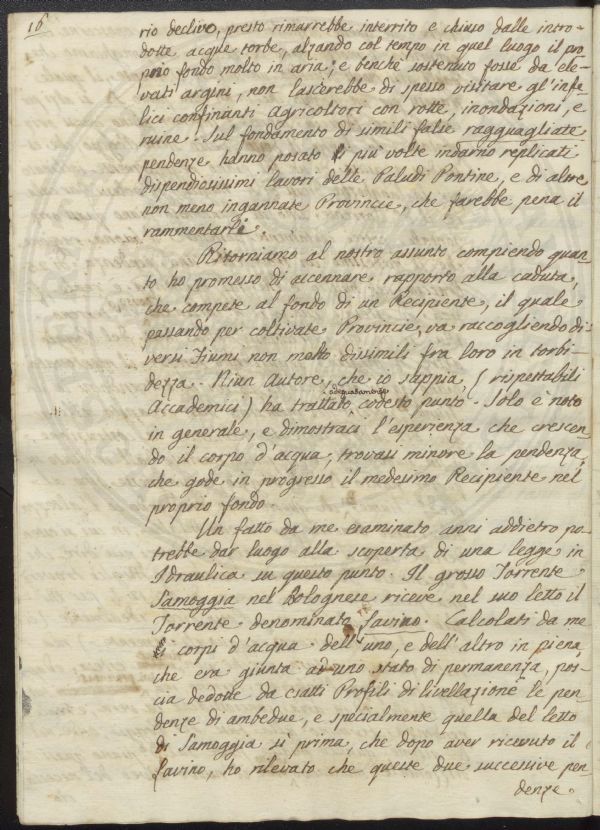 16
rio declivo, presto rimarrebbe interrito e chiuso dalle intro-
dotte acque torbe, alzando col tempo in quel luogo il pro
prio fondo molto in aria; e benchè sostenuto fosse da ele-
vati argini, non lascerebbe di spesso visitare gl'infe-
lici confinanti Agricoltori con rotte, inondazioni, e
ruine. Sul fondamento di simili false ragguagliate
pendenze hanno posato più volte indarno replicati
dispendiosissimi lavori delle Paludi Pontine, e di altre
non meno ingannate Provincie, che farebbe pena il
rammentarle.
Ritorniamo al nostro assunto compiendo quan
to ho promesso di accennare rapporto alla caduta,
che compete al fondo di un Recipiente, il quale
passando per coltivate Provincie, va raccogliendo di-
versi Fiumi non molto dissimili fra loro in torbi-
dezza. Niun Autore, che io sappia, (rispettabili
adeguatamente
Accademici) ha trattato codesto punto. Solo è noto
in generale, e dimostraci l'esperienza che crescen-
do il corpo d'acqua, trovasi minore la pendenza,
che gode in progresso il medesimo Recipiente nel
proprio fondo.
Un fatto da me esaminato anni addietro po-
trebbe dar luogo alla scoperta di una legge in
Idraulica su questo punto. Il grosso Torrente
Samoggia nel Bolognese riceve nel suo letto il
Torrente denominato Lavino. Calcolati da me
i corpi d'acqua dell'uno, e dell'altro in piena,
che era giunta ad uno stato di permanenza, pos-
cia dedotte da esatti Profili di livellazione le pen-
denze di ambedue, e specialmente quella del letto
di Samoggia sì prima, che dopo aver ricevuto il
Lavino, ho rilevato che queste due successive pen-
denze